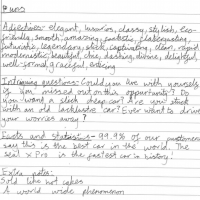 Adjectives - elegant, luxurious, classy, stylish, Eco-
friendly, smooth, amazing, fantastic, elaborating,
futuristic, legendary, slick, captivating, clean, rapid
modernistic, beautiful, chic, dashing, divine, delightful,
well-formed, graceful, enticing
Intriguing questions: Could you live with yourselfs
if you missed out on this opportunity? Do
you want a slick cheap car? Are you stuck
with an old lacklustre car? Ever want to drive
your worries away?
Facts and statistics - 99.9% of our customers
say this is the best car in the world. The
Seal X Pro is the fastest car in history!
Extra notes:
Sold like hot cakes
A world wide phenomenon